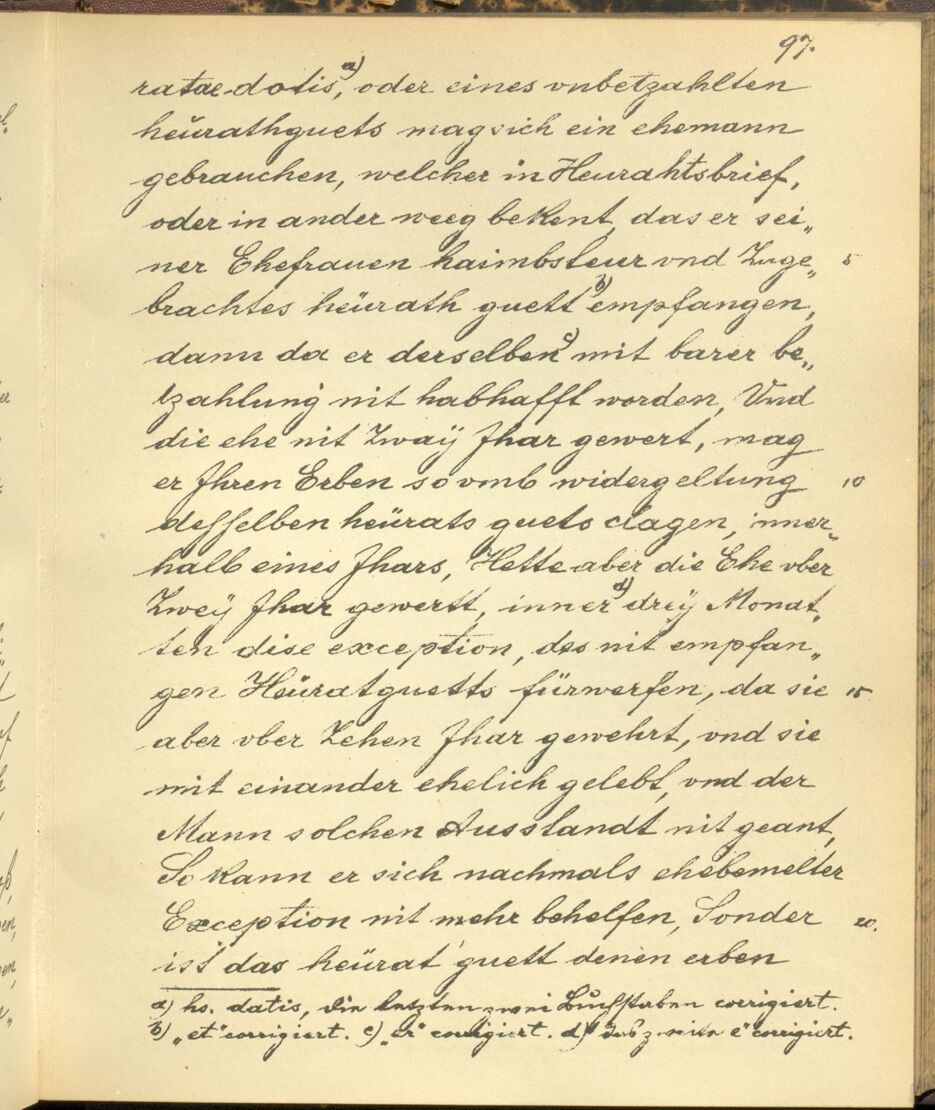 97.
ratae dotis, a) oder eines vnbetzahlten
heürathguets mag sich ein ehemann
gebrauchen, welcher in Heurahtsbrief,
oder in ander weeg bekent, das er sei„
ner Ehefrauen haimbsteur vnd Zuge„ 5
brachtes heürath guett b) empfangen,
dann da er derselben c) mit barer be„
tzahlung nit habhafft worden, Vnd
die ehe nit Zwaÿ Jhar gewert, mag
er Jhren Erben so vmb widergeltung 10
desselben heürats guets clagen, inner„
halb eines Jhars, Hette aber die Ehe vber
Zweÿ Jhar gewertt, inner d) dreÿ Monat„
ten dise exception, des nit empfan„
gen Heüratguetts fürwerfen, da sie 15
aber vber Zehen Jhar gewehrt, vnd sie
mit einander ehelich gelebt, vnd der
Mann solchen Ausstandt nit geant,
So kann er sich nachmals ehebemelter
Exception nit mehr behelfen, Sonder 20.
ist das heürat guett denen erben
a) hs. datis, die letzten zwei Buchstaben corrigiert.
b) „et“ corrigiert. c) „er“ corrigiert. d) e“ corrigiert.